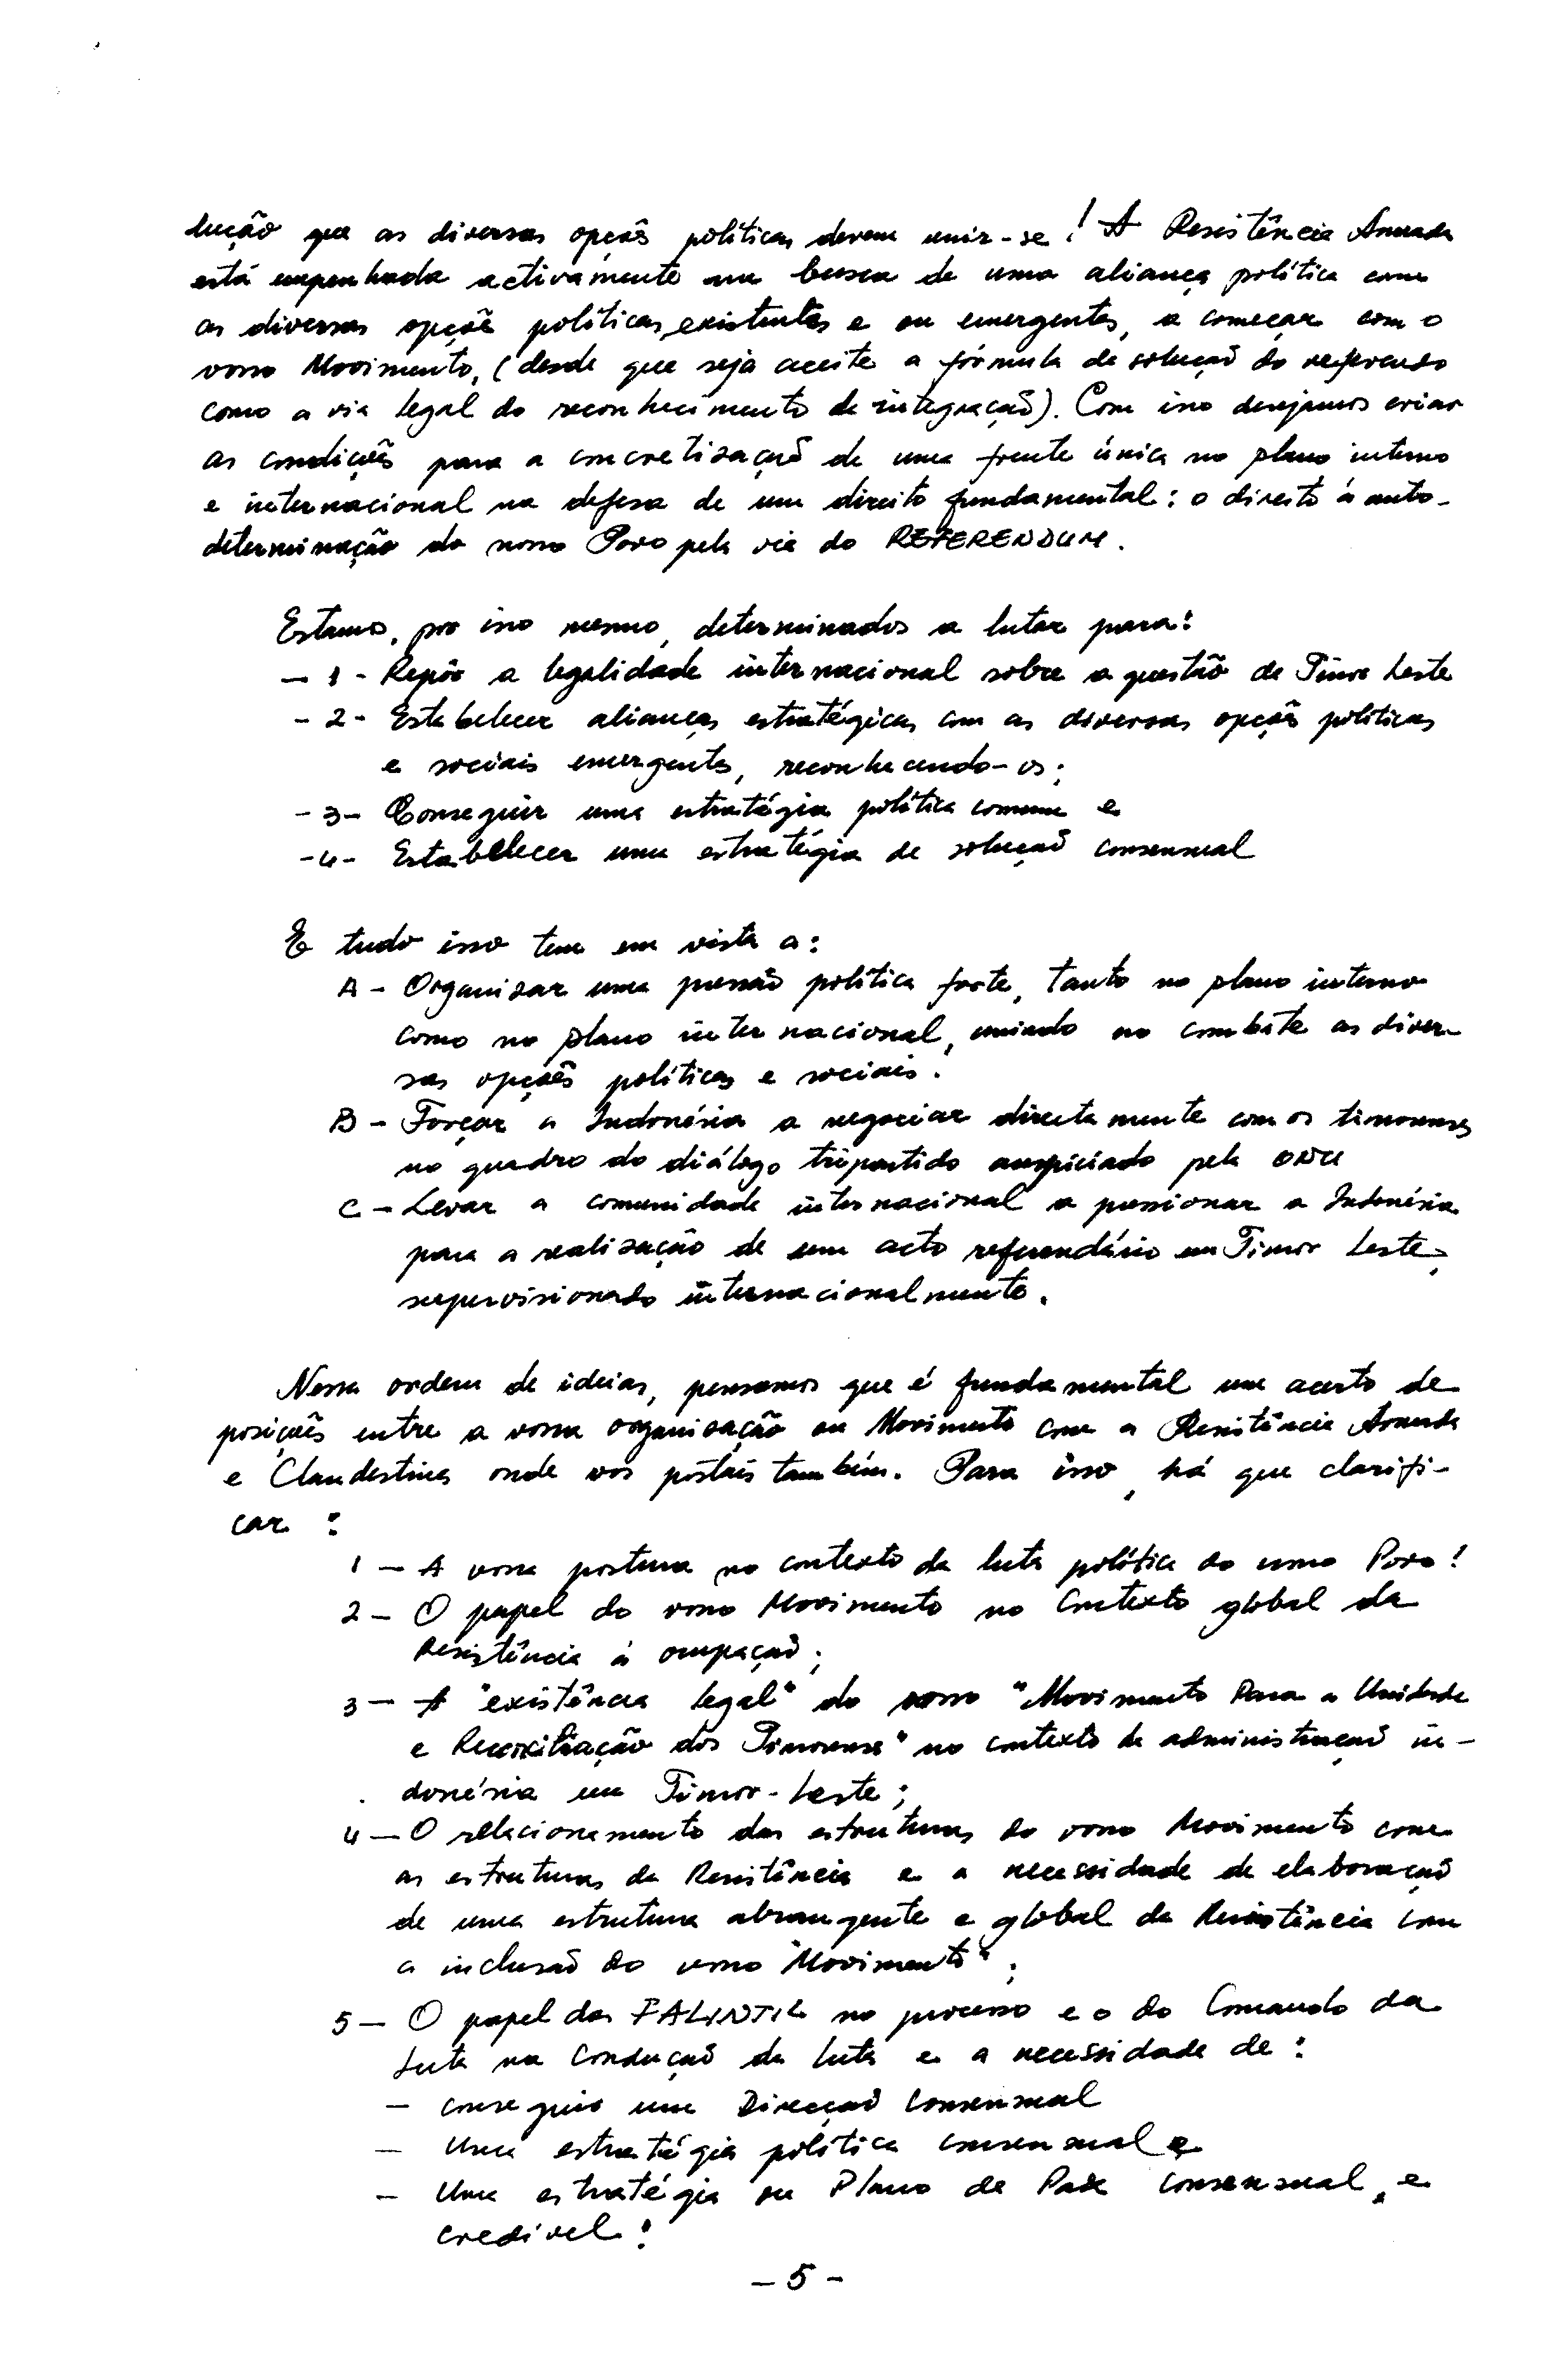 lução que as diversas opções políticas devem unir-se! A Resistência Armada
está empenhada activamente na busca de uma aliança política com
as diversas opções políticas, existentes e ou emergentes, a começar com o
vosso Movimento, (desde que seja aceite a fórmula de solução do referendo
como a via legal do reconhecimento da integração). Com isso desejamos criar
as condições para a concretização de uma frente única no plano interno
e internacional na defesa de um direito fundamental: o direito à auto-
determinação do nosso Povo pela via do REFERENDUM.
Estamos, por isso mesmo, determinados a lutar para:
- 1 - Repôr a legalidade internacional sobre a questão de Timor Leste
- 2 - Estabelecer alianças estratégicas com as diversas opções políticas
e sociais emergentes, reconhecendo-os;
- 3 - Conseguir uma estratégia política comum e
- 4 - Estabelecer uma estratégia de solução consensual
E tudo isso tem em vista a:
A - Organizar uma pressão política forte, tanto no plano interno
como no plano internacional, unindo no combate as diver-
sas opções políticas e sociais.
B - Forçar a Indonésia a negociar directamente com os timorenses
no quadro do diálogo tripartido auspiciado pela ONU
C - Levar a comunidade internacional a pressionar a Indonésia
para a realização de um acto referendário em Timor Leste,
supervisionado internacionalmente.
Nessa ordem de ideias, pensamos que é fundamental um acerto de
posições entre a vossa organização ou Movimento com a Resistência Armada
e Clandestina onde vos postais também. Para isso, há que clarifi-
car :
1 - A vossa postura no contexto da luta política do nosso Povo!
2 - O papel do vosso Movimento no Contexto global da
Resistência à ocupação;
3 - A "existência legal" do vosso "Movimento Para a Unidade
e Reconciliação dos Timorense" no contexto da administração in-
donésia em Timor-Leste;
4 - O relacionamento das estruturas do vosso Movimento com
as estruturas da Resistência e a necessidade de elaboração
de uma estrutura abrangente e global da Resistência com
a inclusão do vosso "Movimento";
5 - O papel das FALINTIL no processo e o do Comando da
Luta na Condução da luta e a necessidade de:
- conseguir uma Direcção Consensual
- Uma estratégia política consensual e
- Uma estratégia ou Plano de Paz Consensual, e
credível!
- 5 -